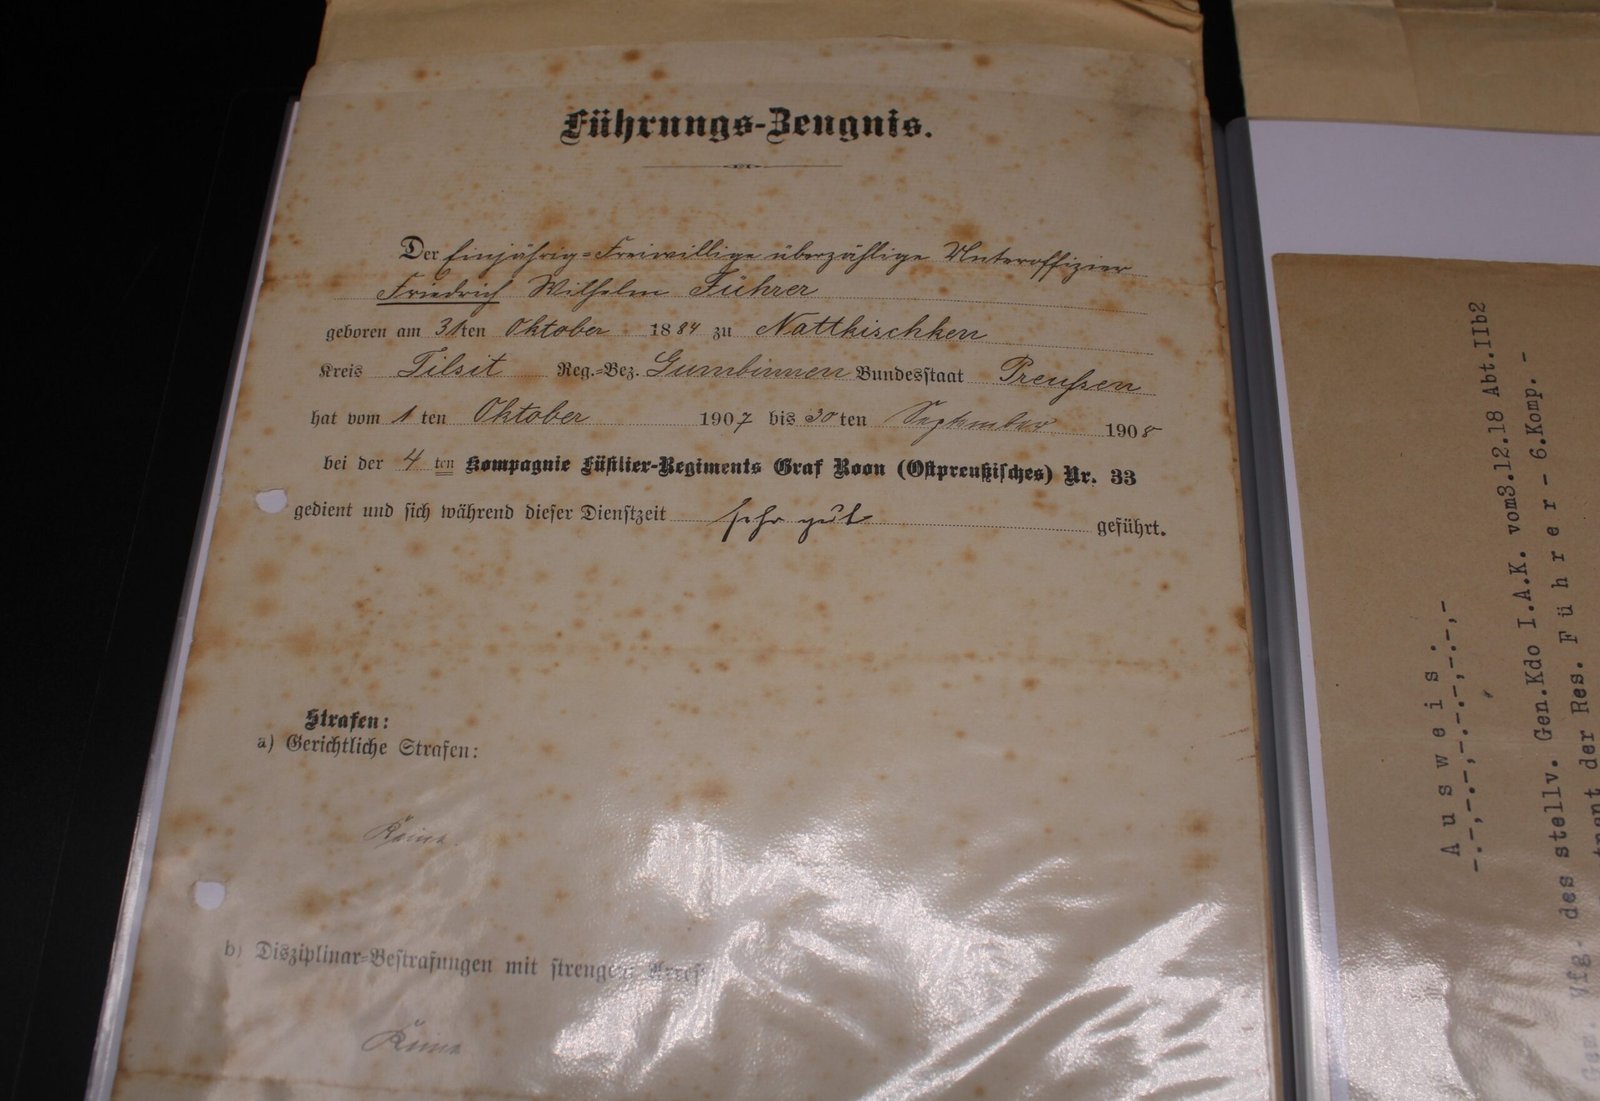 Führungs-Zeugnis.
Der Einjährig-Freiwillige überzählige Unteroffizier
Friedrich Wilhelm Führer
geboren am 31ten Oktober 1884 zu Nattkischken
Kreis Tilsit Reg.-Bez. Gumbinnen Bundesstaat Preußen
hat vom 1 ten Oktober 1907 bis 30 ten September 1908
bei der 4 ten Kompagnie Füsilier-Regiments Graf Roon (Ostpreußisches) Nr. 33
gedient und sich während dieser Dienstzeit sehr gut geführt.
Strafen:
a) Gerichtliche Strafen:
Keine
b) Disziplinar-Bestrafungen mit strengem Arrest
Keine
A u s w e i s .
-.-,-.-,-.-,-.-,-.-,-
Gem. Vfg. des stellv. Gen.Kdo I.A.K. vom3.12.18 Abt.IIb2
der Res. F ü h r e r - 6.Komp. -